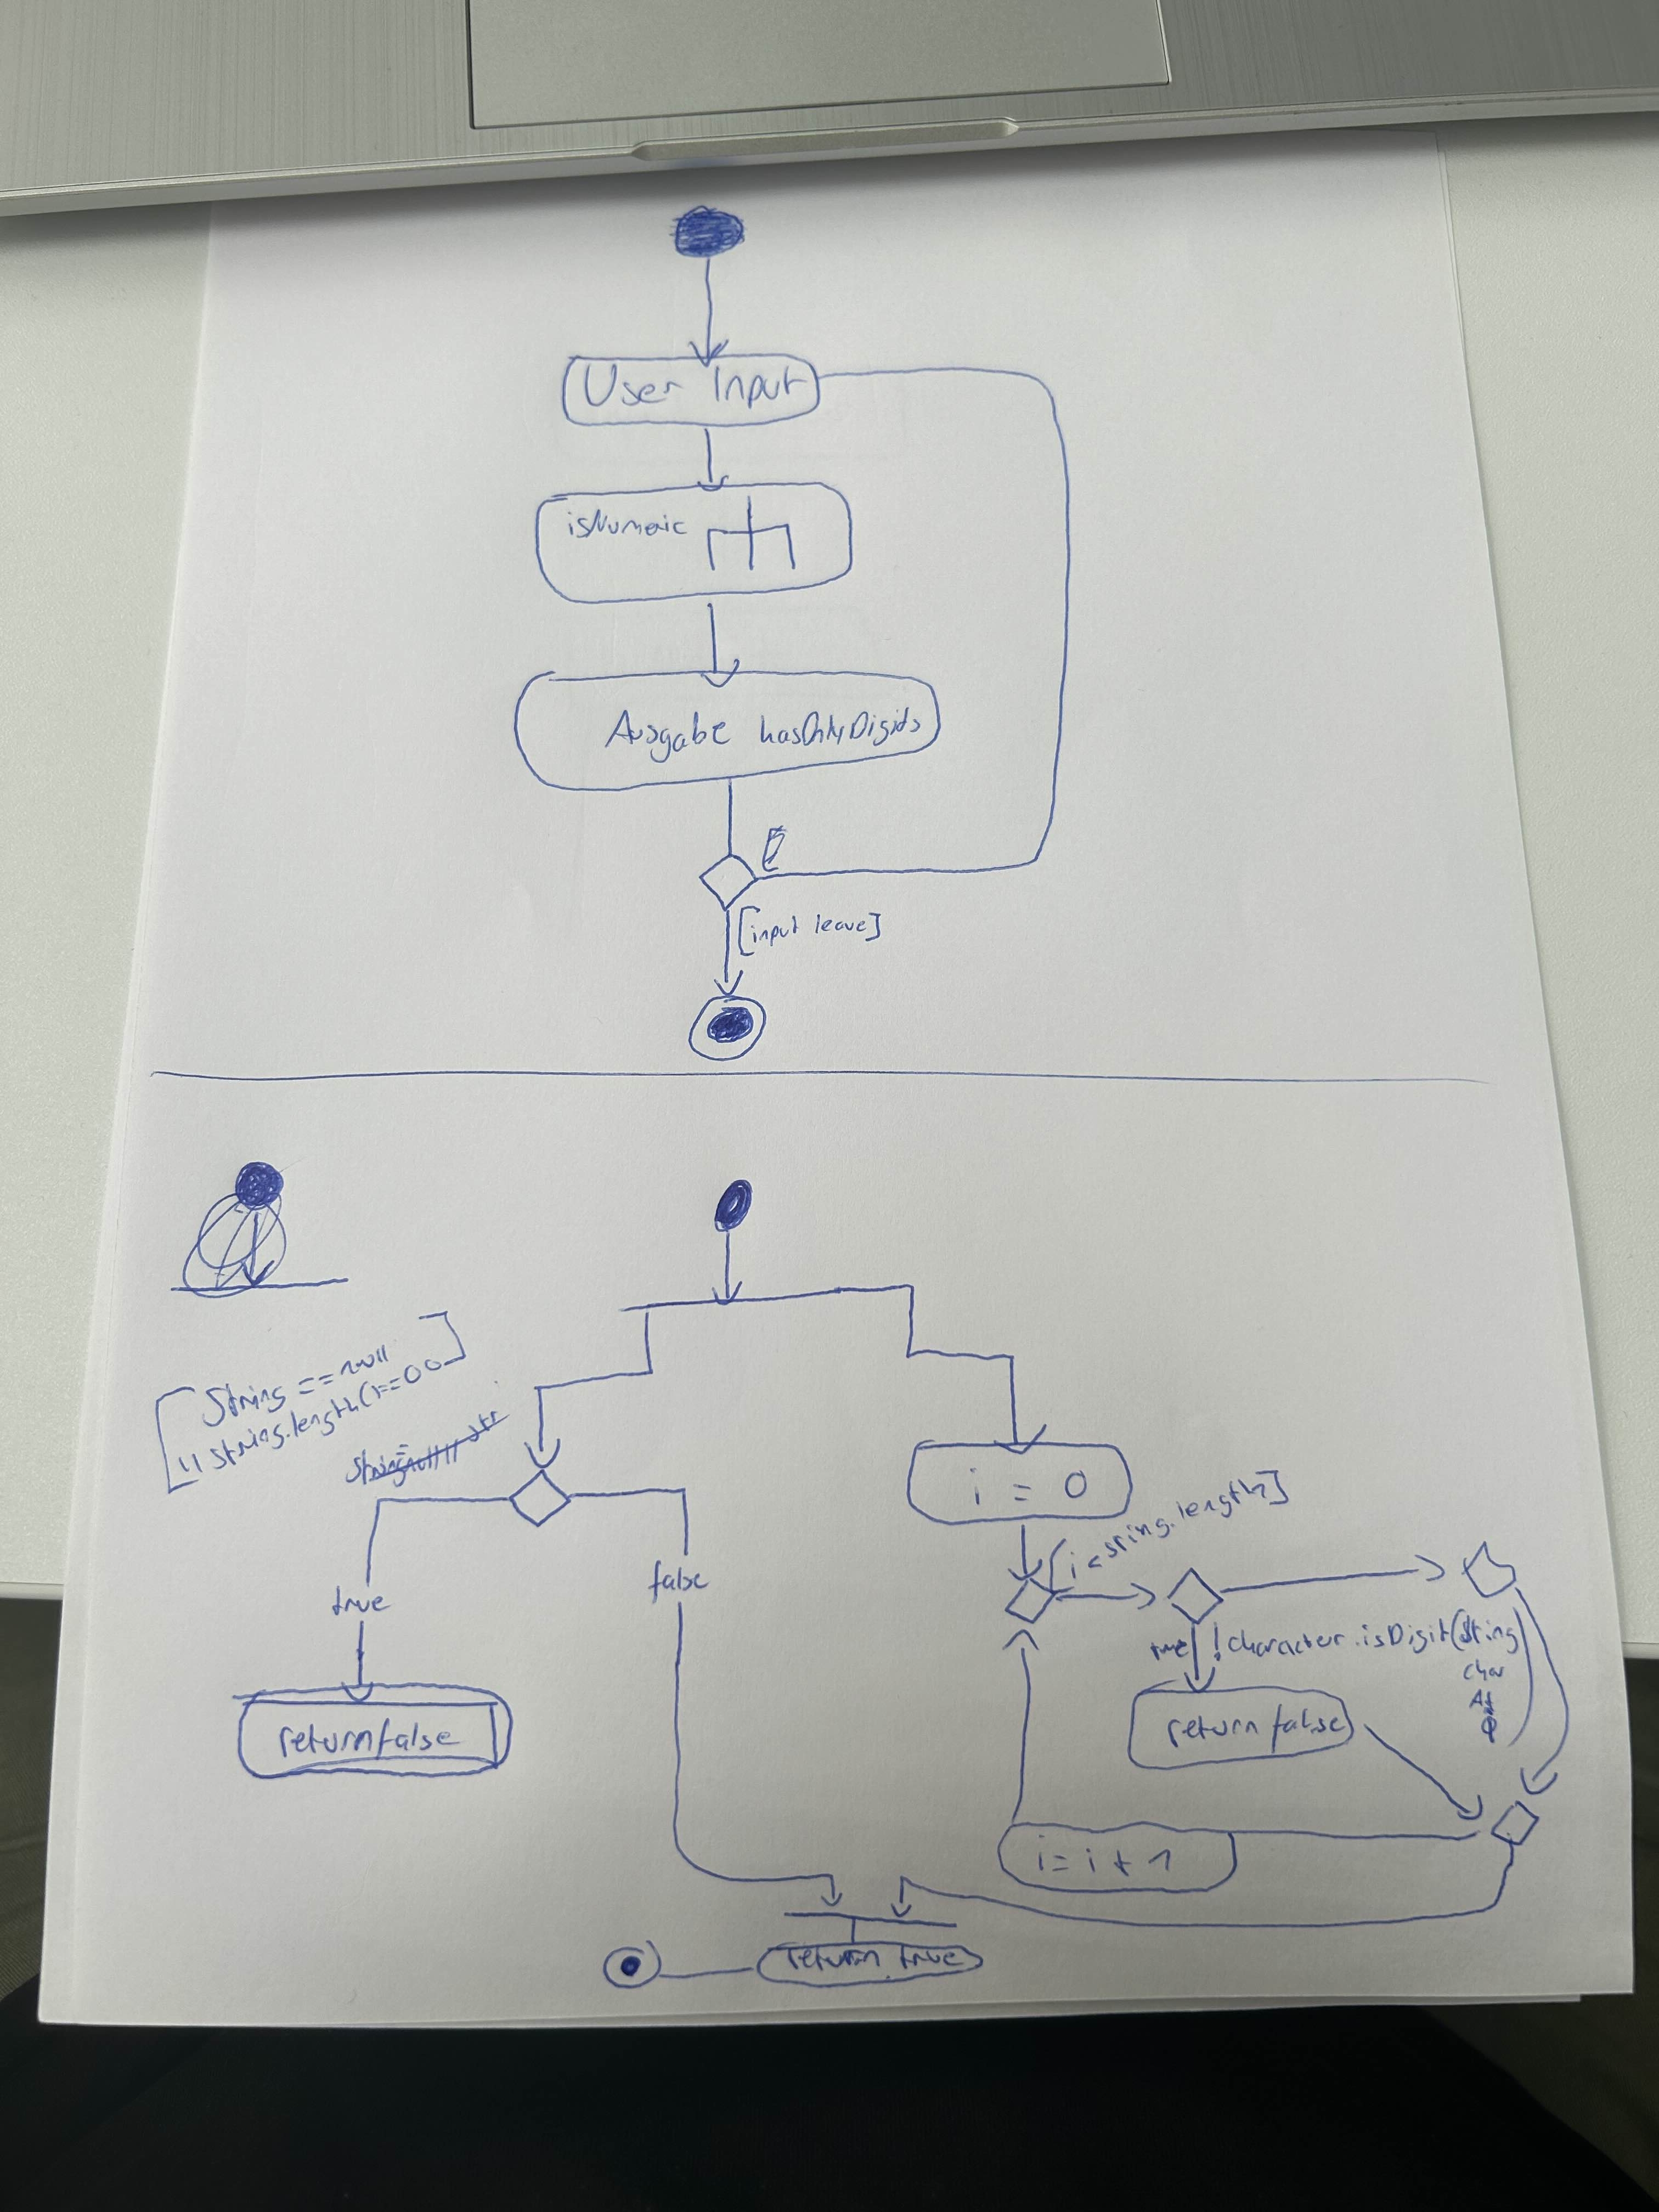 User Input
isNumeic
Ausgabe hasOnlyDigits
[input leave]
[String == null
|| string.length()==0]
false
true
returnfalse
i = 0
[i < string.length]
true !character.isDigit(String
char
At
return false
i = i + 1
return true